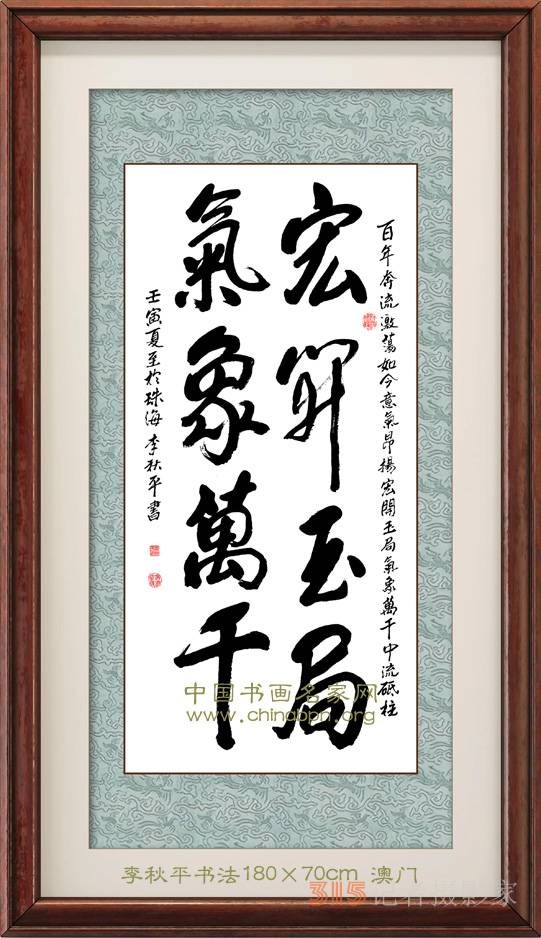 百年奔流激蕩如今意氣昂揚宏開玉局氣象萬千中流砥柱
宏開玉局
氣象萬千
壬寅夏至於珠海 李秋平書
中国书画名家网
www.chinabpn.org
李秋平书法180×70cm 澳门
315记者摄影家